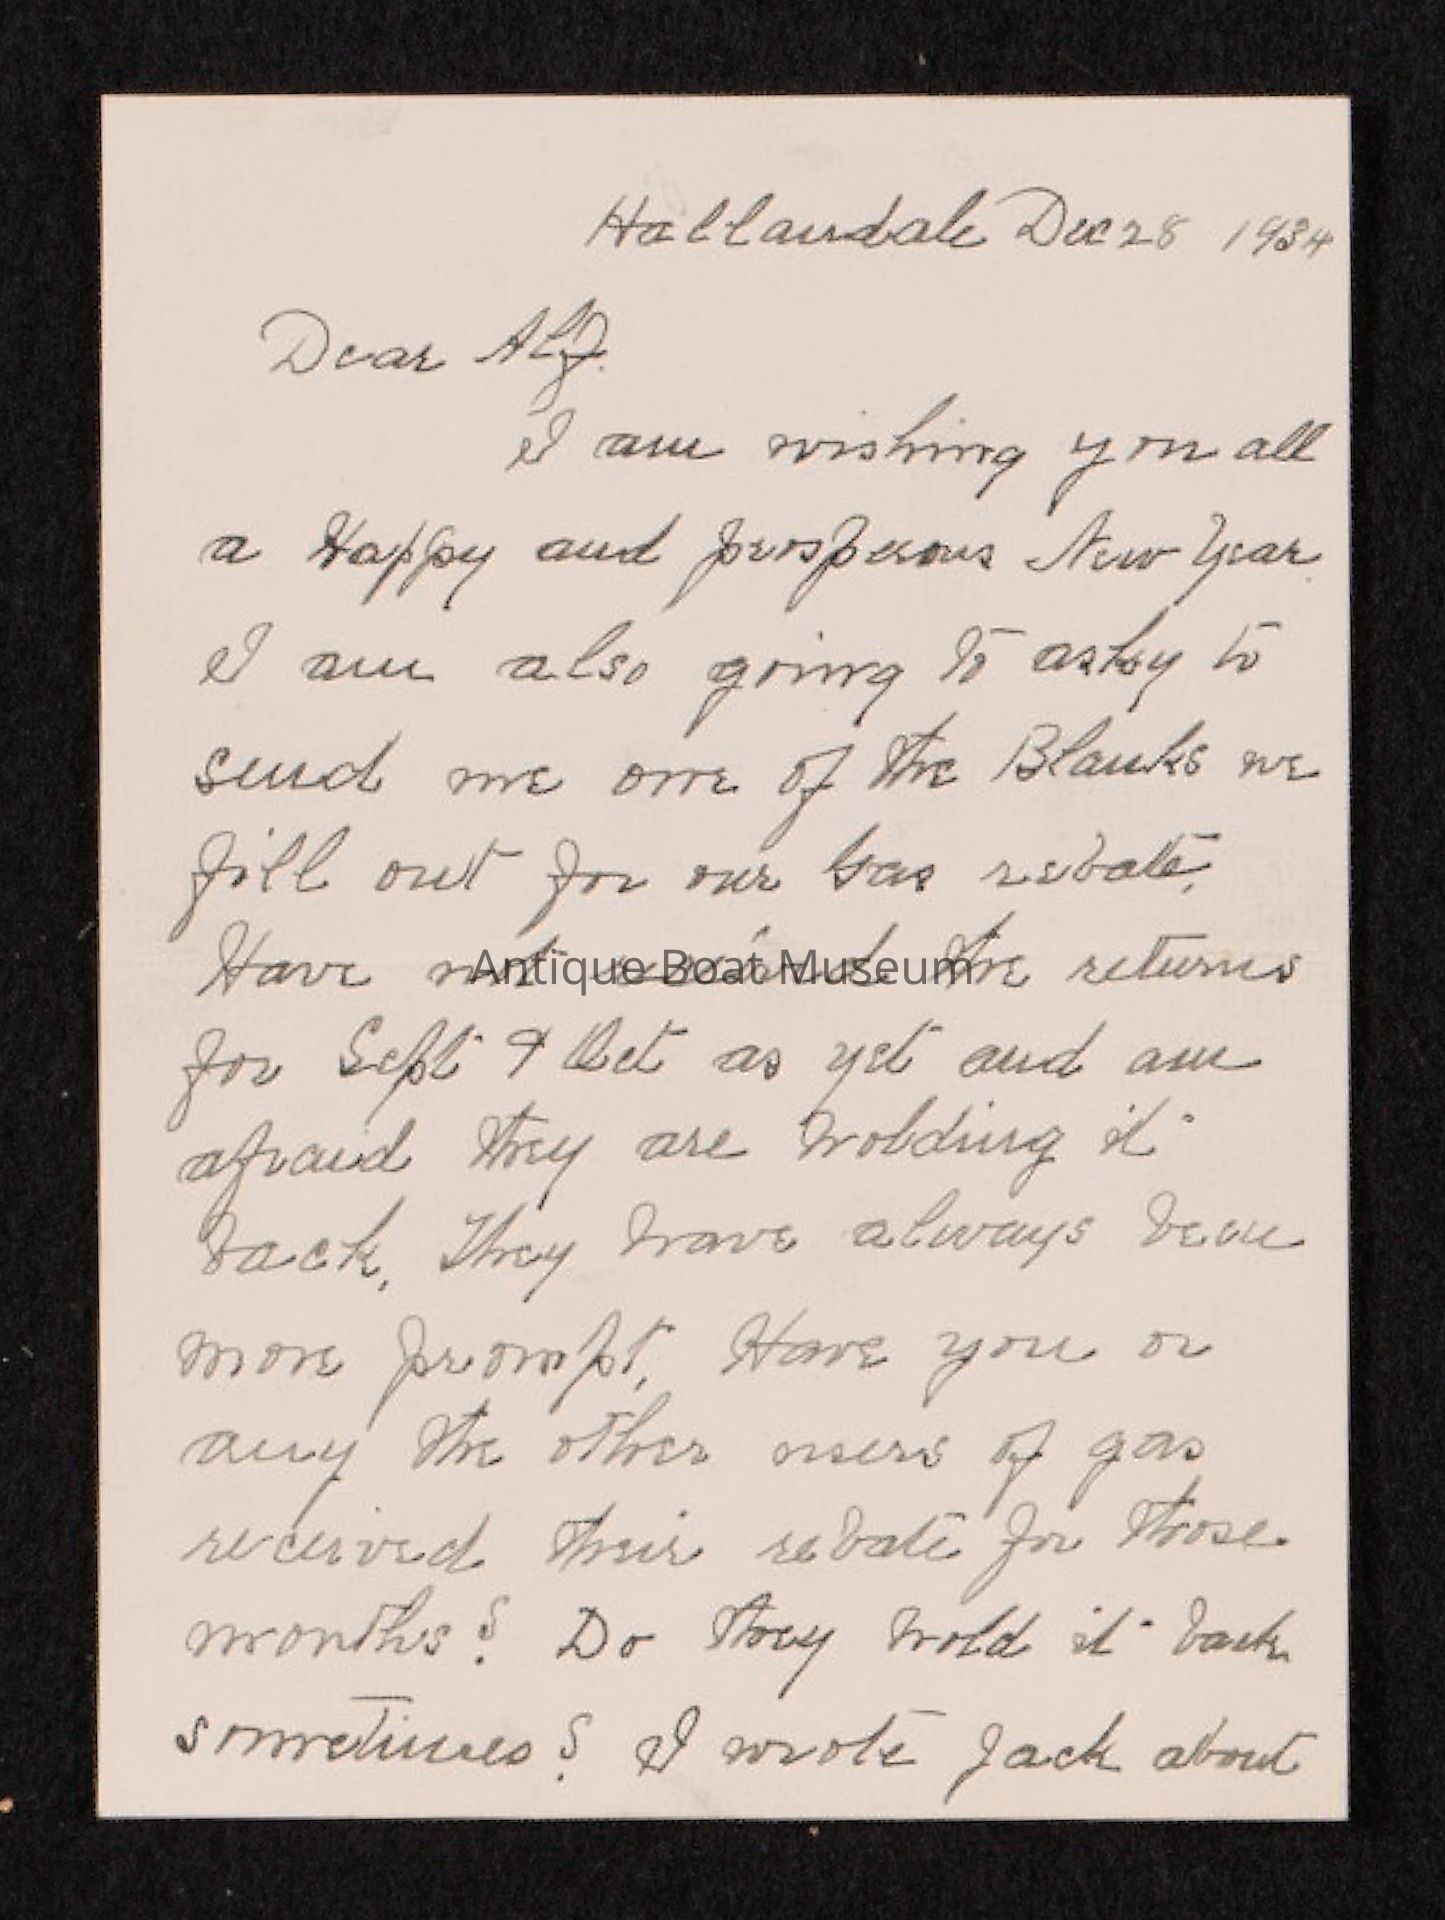 Hallandale Dec 28 1934
Dear Alf.
I am wishing you all
a Happy and prosperous New Year.
I am also going to asky to
send me one of the Blanks we
fill out for our Gas rebate.
Have not received the returns
for Sept & Oct as yet and am
afraid they are holding it
back. They have always been
more prompt. Have you or
any the other users of gas
received their rebate for those
months? Do they hold it back
sometimes? I wrote Jack about
Antique Boat Museum